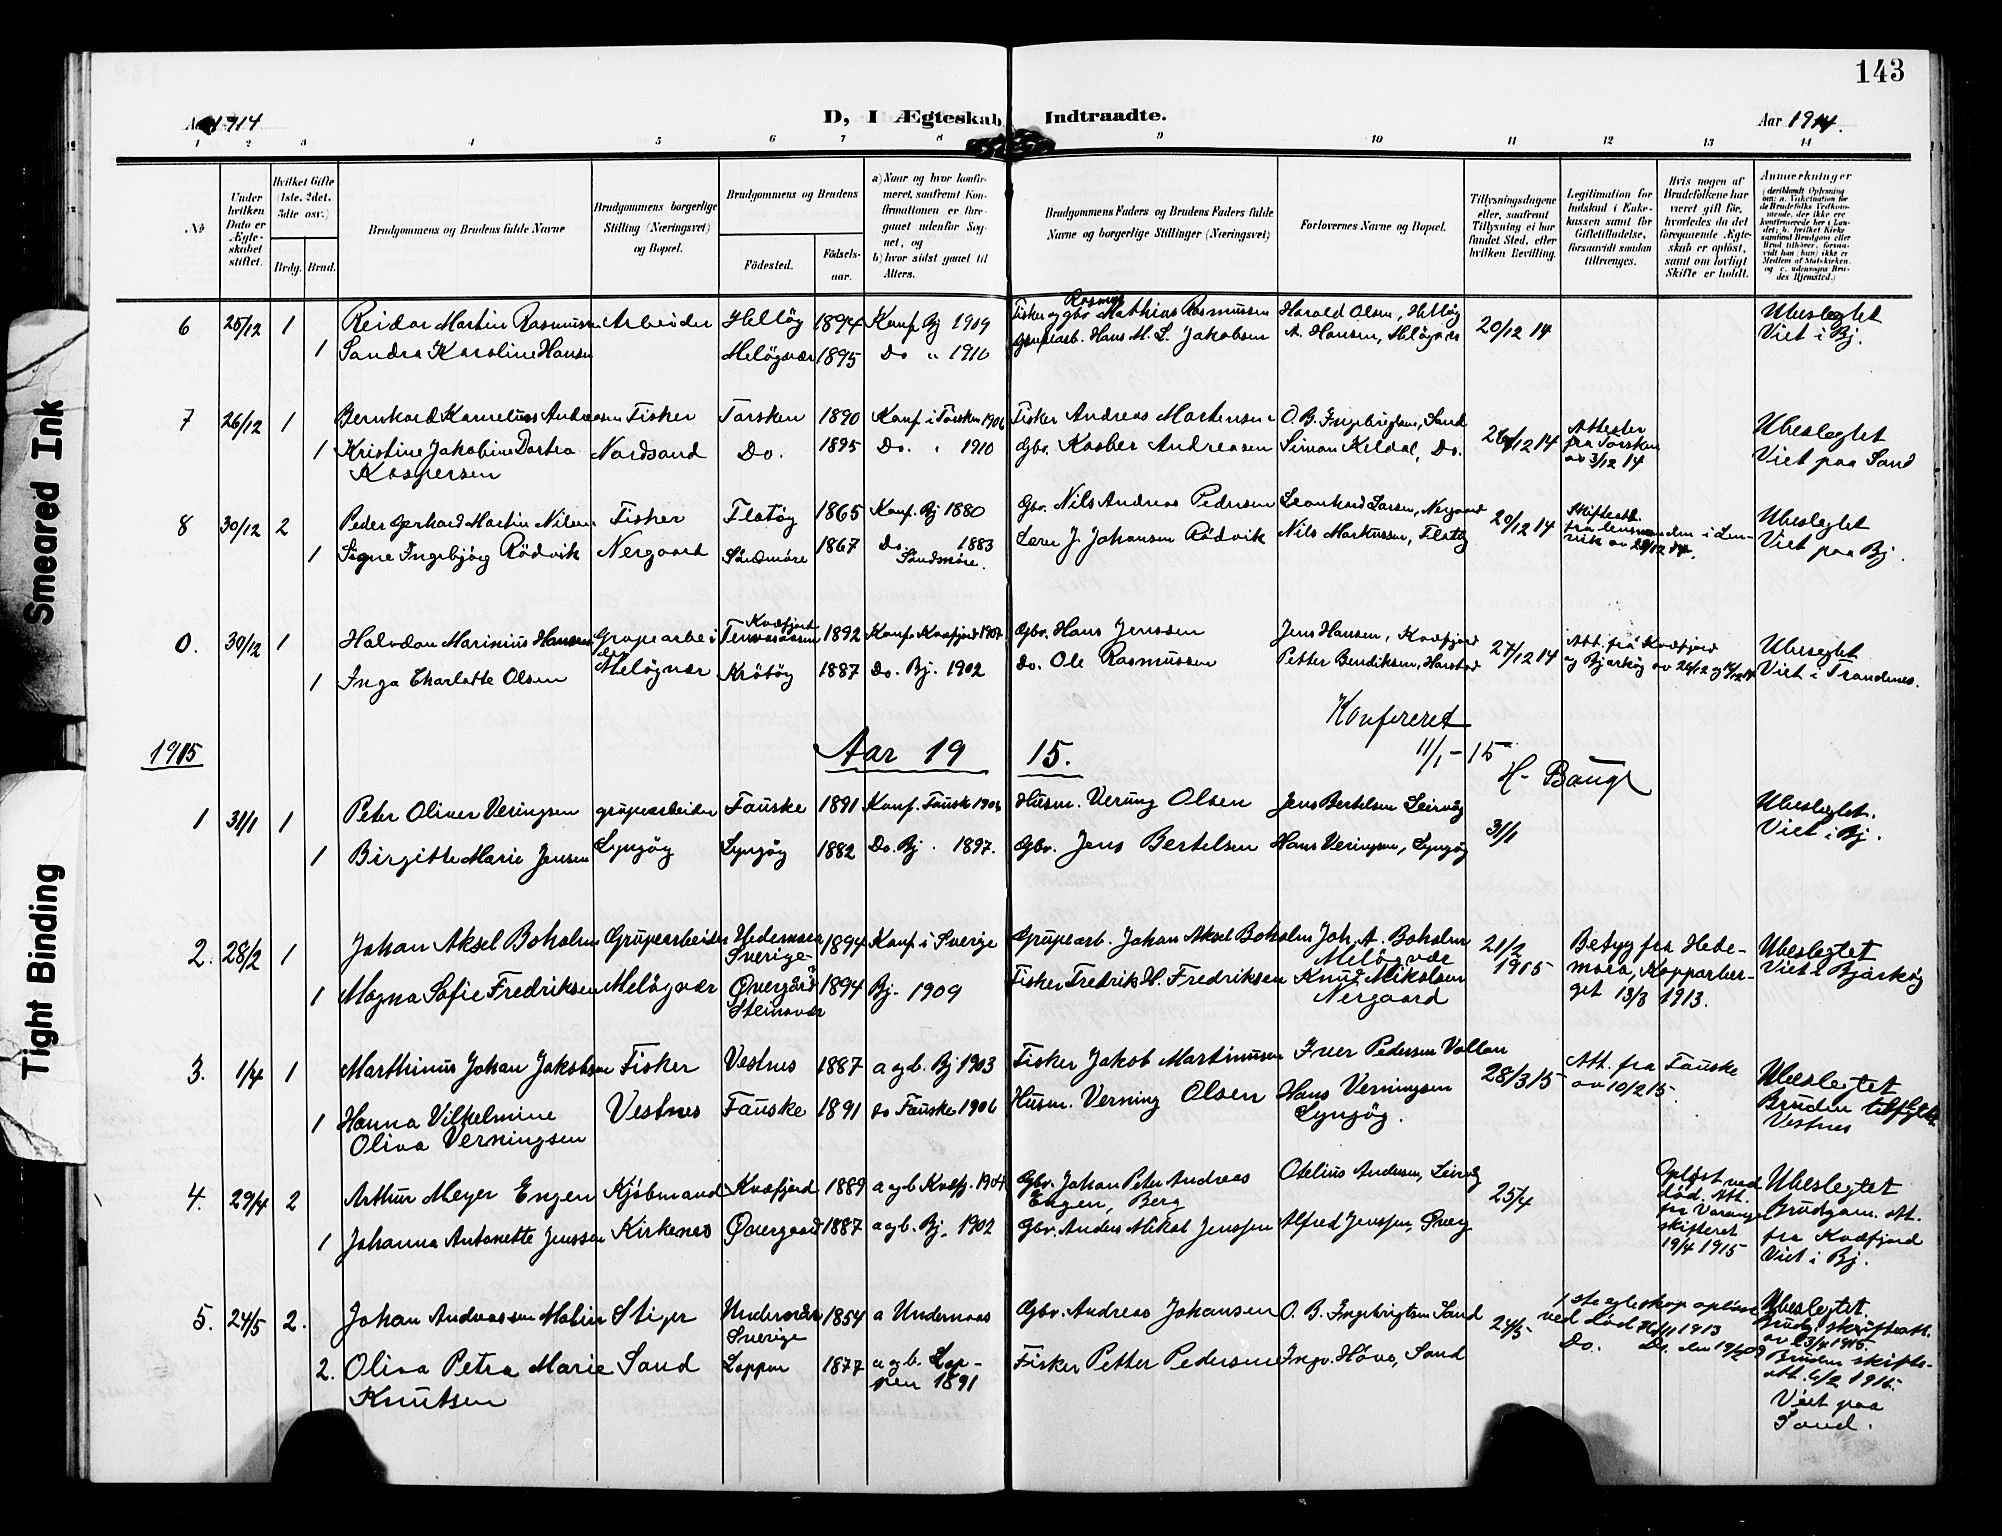 143
Smeared Ink
Tight Binding
Aar 1914
D, I Ægteskab Indtraadte.
Aar 1914.
1 2 3 4 5 6 7 8 9 10 11 12 13 14
No
Under hvilken Dato er Ægteskabet stiftet.
Hvilket Gifte (1ste, 2det, 3die osv.)
Brdg. Brud.
Brudgommens og Brudens fulde Navne
Brudgommens borgerlige Stilling (Næringsvei) og Bopæl.
Brudgommens og Brudens
Fødested. Fødselsaar.
a) Naar og hvor konfirmeret, saafremt Konfirmationen er foregaaet udenfor Sognet, og
b) hvor sidst gaaet til Alters.
Brudgommens Faders og Brudens Faders fulde Navne og borgerlige Stillinger (Næringsvei)
Forlovernes Navne og Bopæl.
Tillysningsdagene eller, saafremt Tillysning ei har fundet Sted, efter hvilken Bevilling.
Legitimation for Indskud i Enkekassen samt for Giftetilladelse, forsaavidt saadan tiltrænges.
Hvis nogen af Brudefolkene har været gift før, hvorledes da det foregaaende Ægteskab er opløst, samt om lovligt Skifte er holdt.
Anmærkninger
6 25/12 1 Reidar Martin Rasmussen Arbeider Helløy 1894 Konf. Bj 1909 Fisker og gbr. Rasmus Mathias Rasmussen Harald Olsen, Helløy 20/12 14 Ubeslegtet
1 Sandra Karoline Hansen Meløyvær 1895 Do " 1910 Hans M. L. Jakobsen A. Hansen, Meløyvær Viet i Bj.
7 26/12 1 Bernhard Kornelius Andreasen Fisker Torsken 1890 Konf. i Torsken 1906 Fisker Andreas Martensen O. B. Ingebrigtsen, Sand 26/12 14 Attester fra Torsken av 3/12 14 Ubeslegtet
1 Kristine Jakobine Dortea Kaspersen Nordsand Do. 1895 Do. " 1910 Gbr. Kasber Andreasen Simon Kildal, Do. Viet paa Sand
8 30/12 2 Peder Gerhard Martin Nilsen Fisker Flatøy 1865 Konf. Bj 1880 Gbr. Nils Andreas Pedersen Leonhard Larsen, Nergaard 20/12 14 Skifteatt. fra lensmanden i Lenvik av Ubeslegtet
1 Signe Ingebjørg Rødvik Nergaard Søndmøre 1867 Do. 1883 Søndmøre. Lerer J. Johansen Rødvik Nils Markussen, Flatøy Viet paa Bj.
0. 30/12 1 Halvdan Marinius Hansen Grupearbeider Kvæfjord 1892 Konf. Kvæfjord 1907 Gbr. Hans Jenssen Jens Hansen, Kvæfjord 27/12 14 Att. fra Kvæfjord og Bjarkøy av 26/12 og Ubeslegtet
1 Inga Charlotte Olsen Meløyvær Krøtøy 1887 Do. Bj. 1902 Do. Ole Rasmussen Petter Bendiksen, Harstad Viet i Trondenes.
Konfereret
11/1 - 15
H. Baugr
1915 Aar 1915.
1 31/1 1 Peter Oliver Veringsen grupearbeider Fauske 1891 Konf. Fausk 1906 Husm. Verung Olsen Jens Bertelsen Leirvåg 31/1 Ubeslegtet.
1 Birgitte Marie Jensen Lyngøy Lyngøy 1882 Do. Bj. 1897. Gbr. Jens Bertelsen Hans Veringsen, Lyngøy Viet i Bj.
2. 28/2 1 Johan Aksel Boholm Grupearbeider Hedemora Sverige 1894 Konf. i Sverige Grupearb. Johan Aksel Boholm Joh. A. Boholm Meløyvær 21/2 1915 Betyg fra Hedemora, Kopparberget 13/3 1913. Ubeslegtet
1 Magna Sofie Fredriksen Meløyvær Øvergård Steinavær 1894 Bj. 1909 Fisker Fredrik H. Fredriksen Knud Mikalsen Nergaard Viet i Bjarkøy
3. 1/4 1 Marthinus Johan Jakobsen Fisker Vestnes 1887 a og b. Bj 1903 Fisker Jakob Martinusen Iver Pedersen Vollan 28/3 15 Att. fra Fauske av 10/2 15. Ubeslegtet
1 Hanna Vilhelmine Oliva Verningsen Vestnes Fauske 1891 do Fauske 1906 Husm. Verning Olsen Hans Verningsen Lyngøy. Bruden tilflyttet Vestnes
4. 29/4 2 Arthur Meyer Engen Kjøbmand Kvæfjord 1889 a og b Kvæfj. 1904 Gbr. Johan Peter Andreas Engen, Berg Otelius Andersen, Leirvåg 25/4 Opløst ved død. Att. fra Varanger skifteret 19/4 1915 Ubeslegtet
1 Johanna Antonette Jenssen Kirkenes Øvergaard 1887 a og b. Bj. 1902 Gbr. Anders Mikal Jenssen Alfred Jenssen, Brudgom. att. fra Kvæfjord Viet i Bj.
5. 24/5 2. Johan Andreassen Malin Stiger Undernäs Sverige 1854 a Undernaas Gbr. Andreas Johansen O. B. Ingebrigtsen Sand 24/5 1ste egteskap opløst ved død 1913 Ubeslegtet.
2. Oliva Petra Marie Knutsen Sand Loppen 1877 a og b. Loppen 1891 Fisker Petter Pedersen Ingv. Høve, Sand Do. Do. den Bruden skifteatt. 6/2 1915. Viet paa Sand.